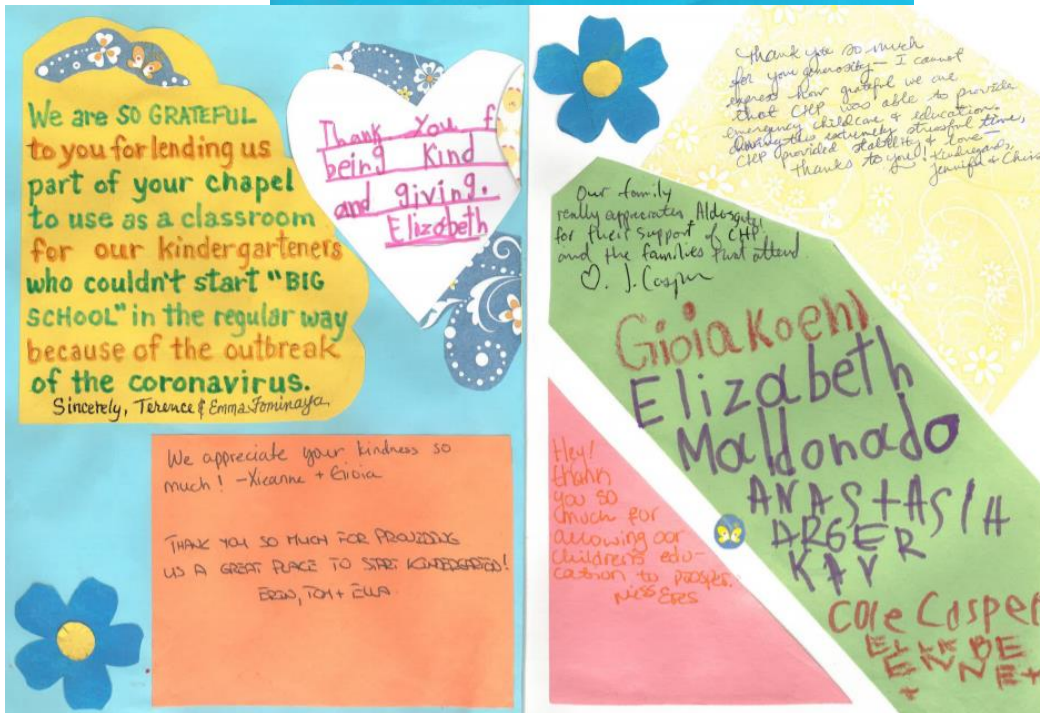 We are SO GRATEFUL
to you for lending us
part of your chapel
to use as a classroom
for our kindergarteners
who couldn't start "BIG
SCHOOL" in the regular way
because of the outbreak
of the coronavirus.
Sincerely, Terence & Emma Fominaya
Thank You f
being Kind
and giving.
Elizabeth
We appreciate your kindness so
much! - + Gioia
THANK YOU SO MUCH FOR PROVIDING
US A GREAT PLACE TO START KINDERGARTEN!
ERIN, TOM + ELLA
Thank you so much
for your generosity - I cannot
express how grateful we are
that CHP was able to provide
emergency childcare & education.
During this extremely stressful time,
CHP provided stability & love -
thanks to you! Kind regards,
Jennifer & Chris
Our family
really appreciates Aldersgate
for their support of CHP
and the families that attend.
♡. J. Casper
Gioia Koehl
Elizabeth
Maldonado
ANASTASIA
ARGER
KAY
Cole Casper
Hey!
thank
you so
much for
allowing our
childrens edu-
cation to prosper.